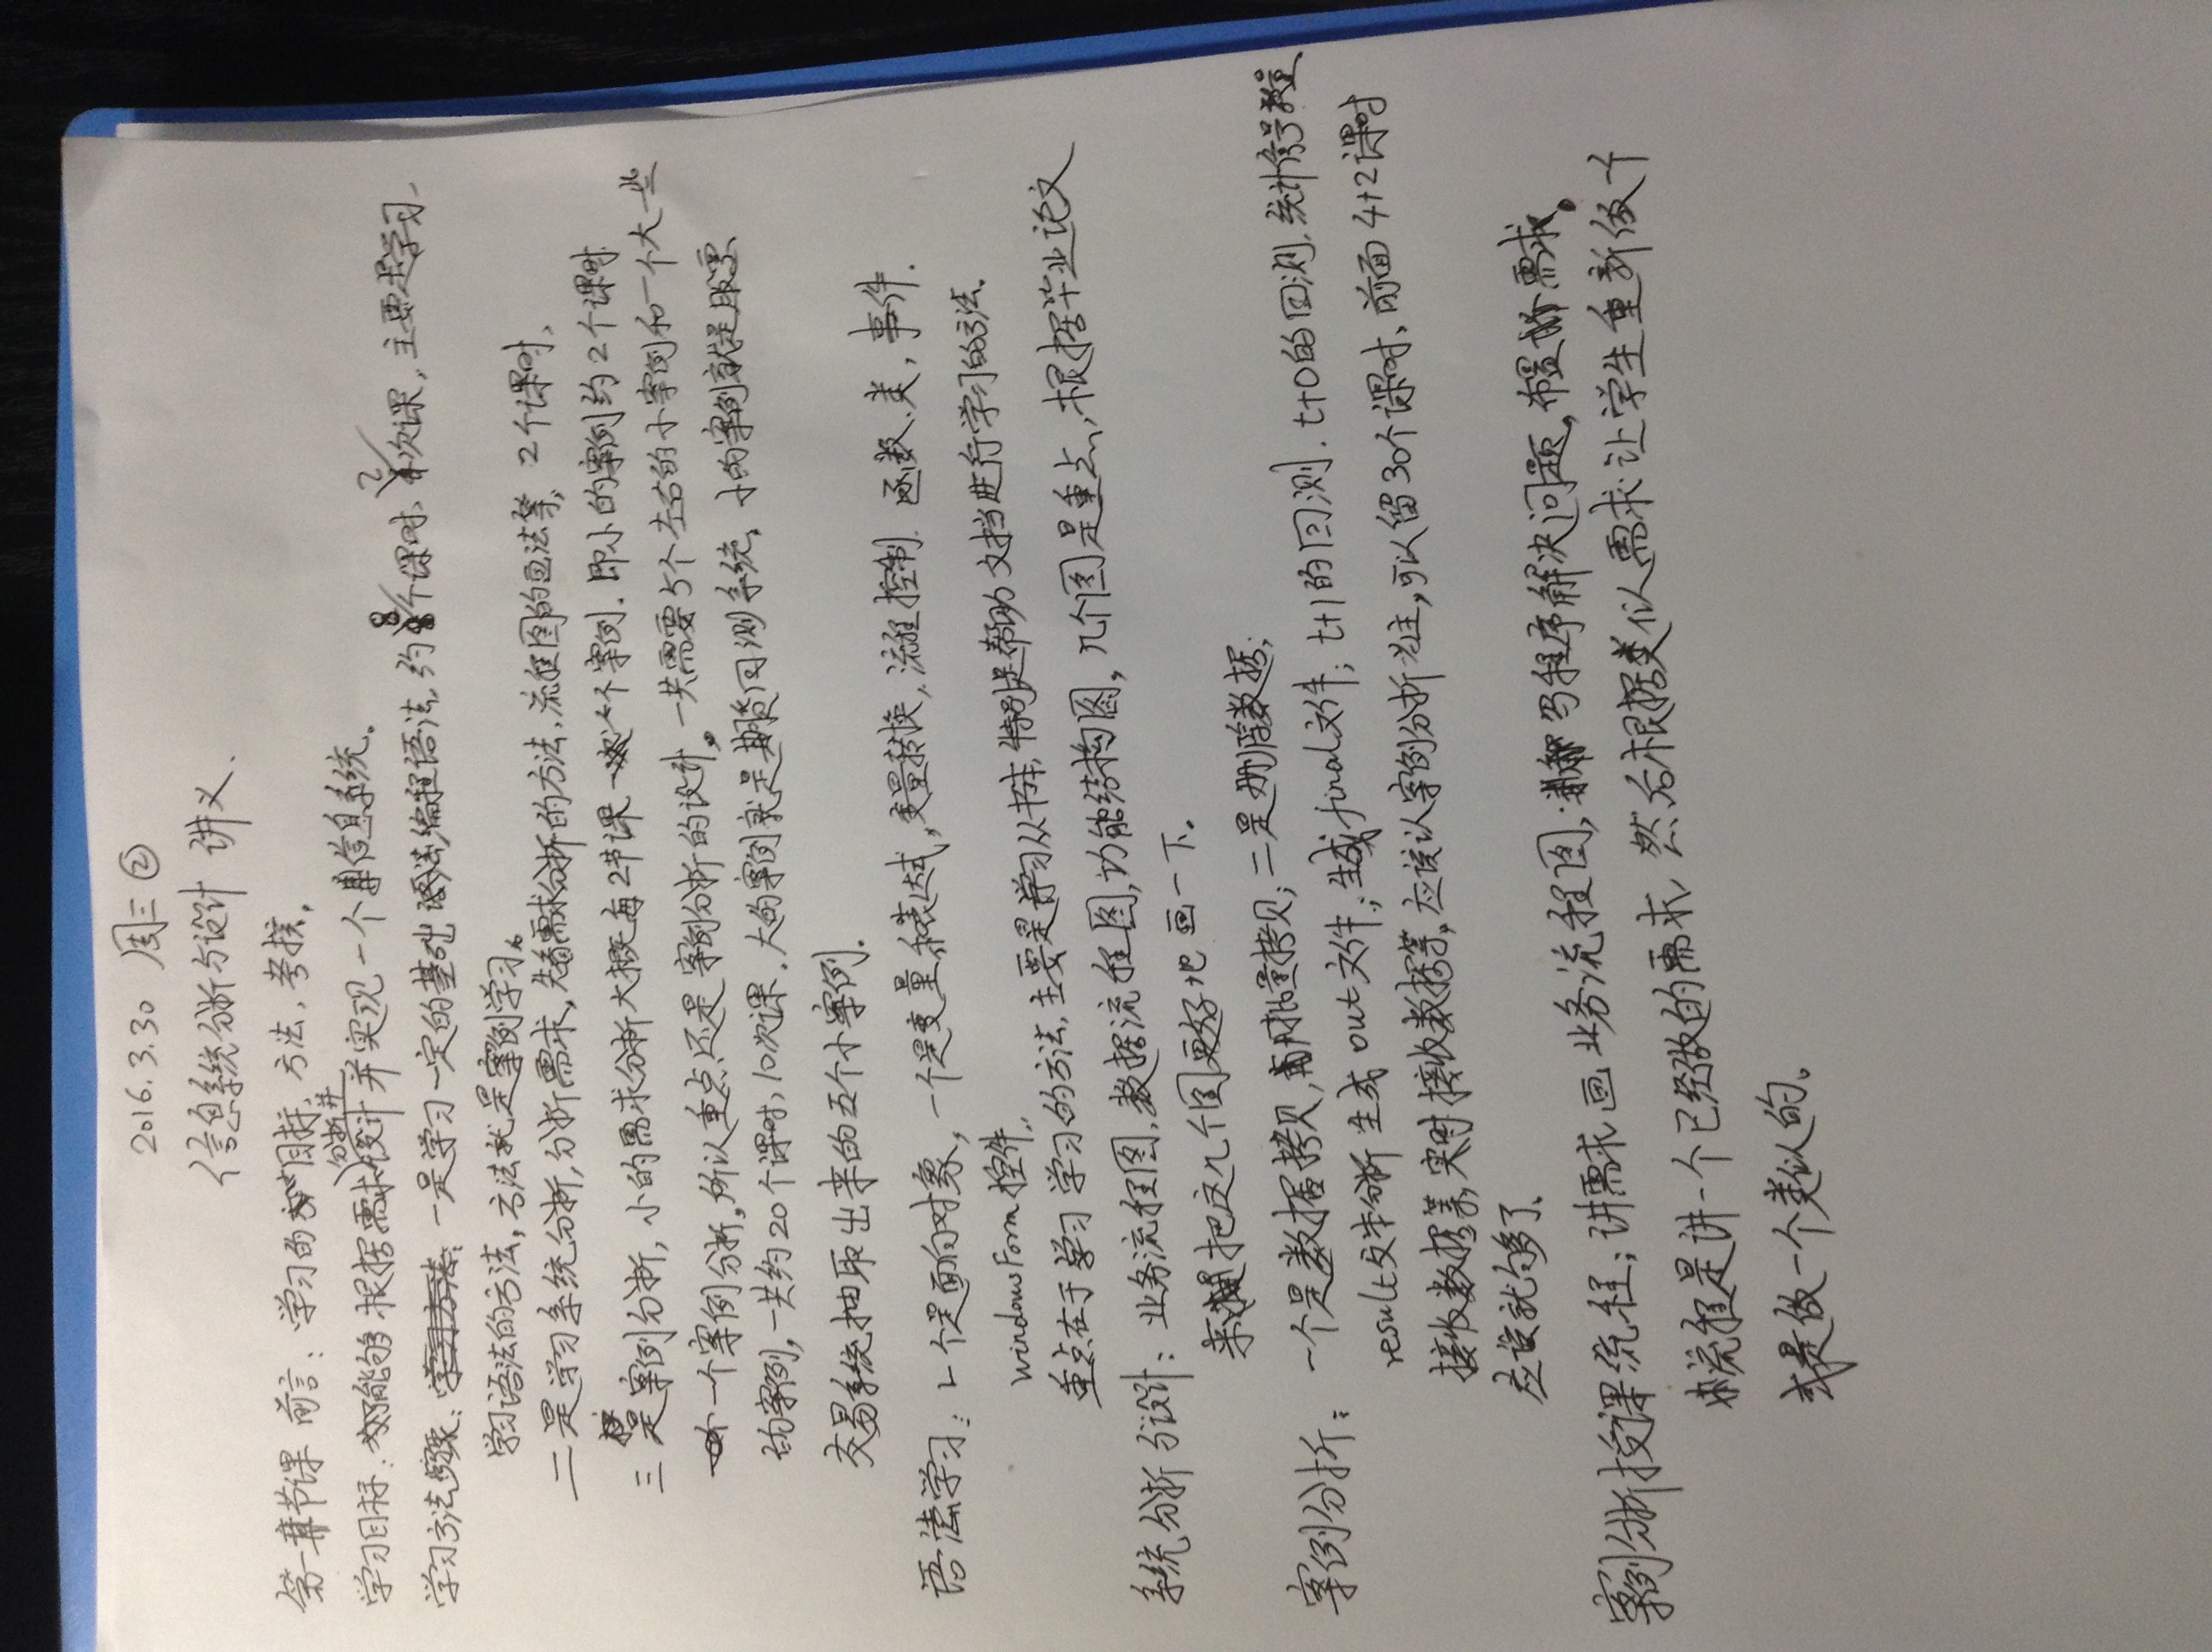 2016.3.30 周三 ②
信息系统分析与设计 讲义.
第一节课 前言：学习的目标，方法，考核。
学习目标：能够根据需求分析并设计并实现一个信息系统。
学习方法：一是学习一定的基础编程语法，约8个课时、2次课，主要是学习
学习语法的方法，方法就是案例学习。
二是学习系统分析，分析需求，先看需求分析的方法，流程图的画法等，2个课时，
三是案例分析，小的需求分析大概每2节课一个案例．即小的案例约2个课时
一个案例分析，所以重点还是案例分析的设计。一共需要5个左右的小案例和一个大一些
的案例，一共约20个课时，10次课．大的案例就是期货回测系统，小的案例就是股票
交易系统抽取出来的五个小案例．
语法学习：1个是面向对象，一个是变量和表达式，变量转换，流程控制．函数、类，事件．
windowsForm控件，
重点在于学习学习的方法，主要是学习从书本，特别是帮助文档进行学习的方法．
系统分析与设计：业务流程图，数据流程图，功能结构图，几个图是重点，根据毕业论文
来把这几个图更好地画一下。
案例分析：一个是数据拷贝，再用批量拷贝；二是删除数据；
result文本分析生成out文件；生成final文件；t+1的回测．t+0的回测．统计信号数量
接收数据等，实时接收数据等，应该认案例分析为主，可以留30个课时，前面4+2课时
应该就够了、
案例分析授课流程；讲需求画业务流程图，写程序解决问题，布置需求。
流程是讲一个已经做的需求，然后根据类似需求让学生重新做一个
或是做一个类似的。